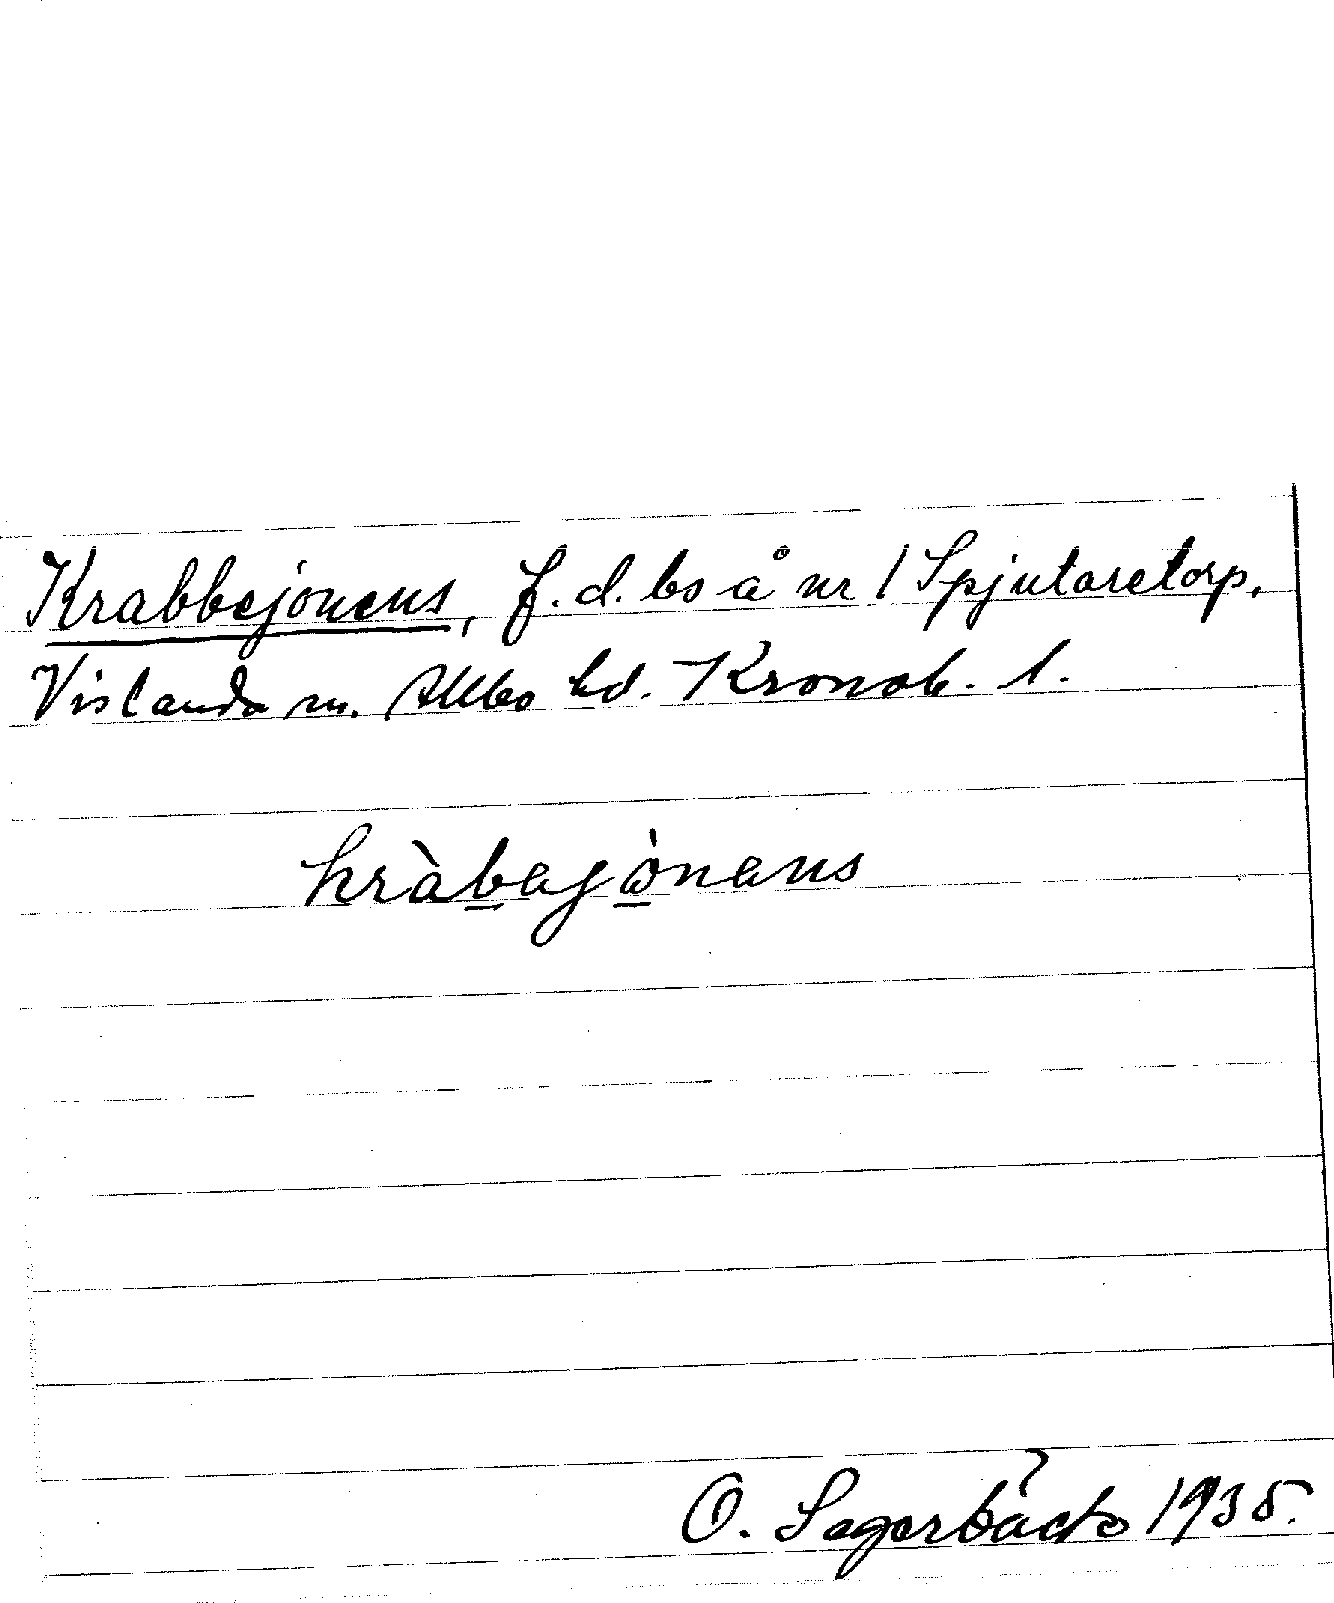 Krabbejonens, f.d. bs å nr 1 Spjutaretorp,
Vislanda sn. Allbo hd. Kronob. l.
kràbejònens
O. 1935.